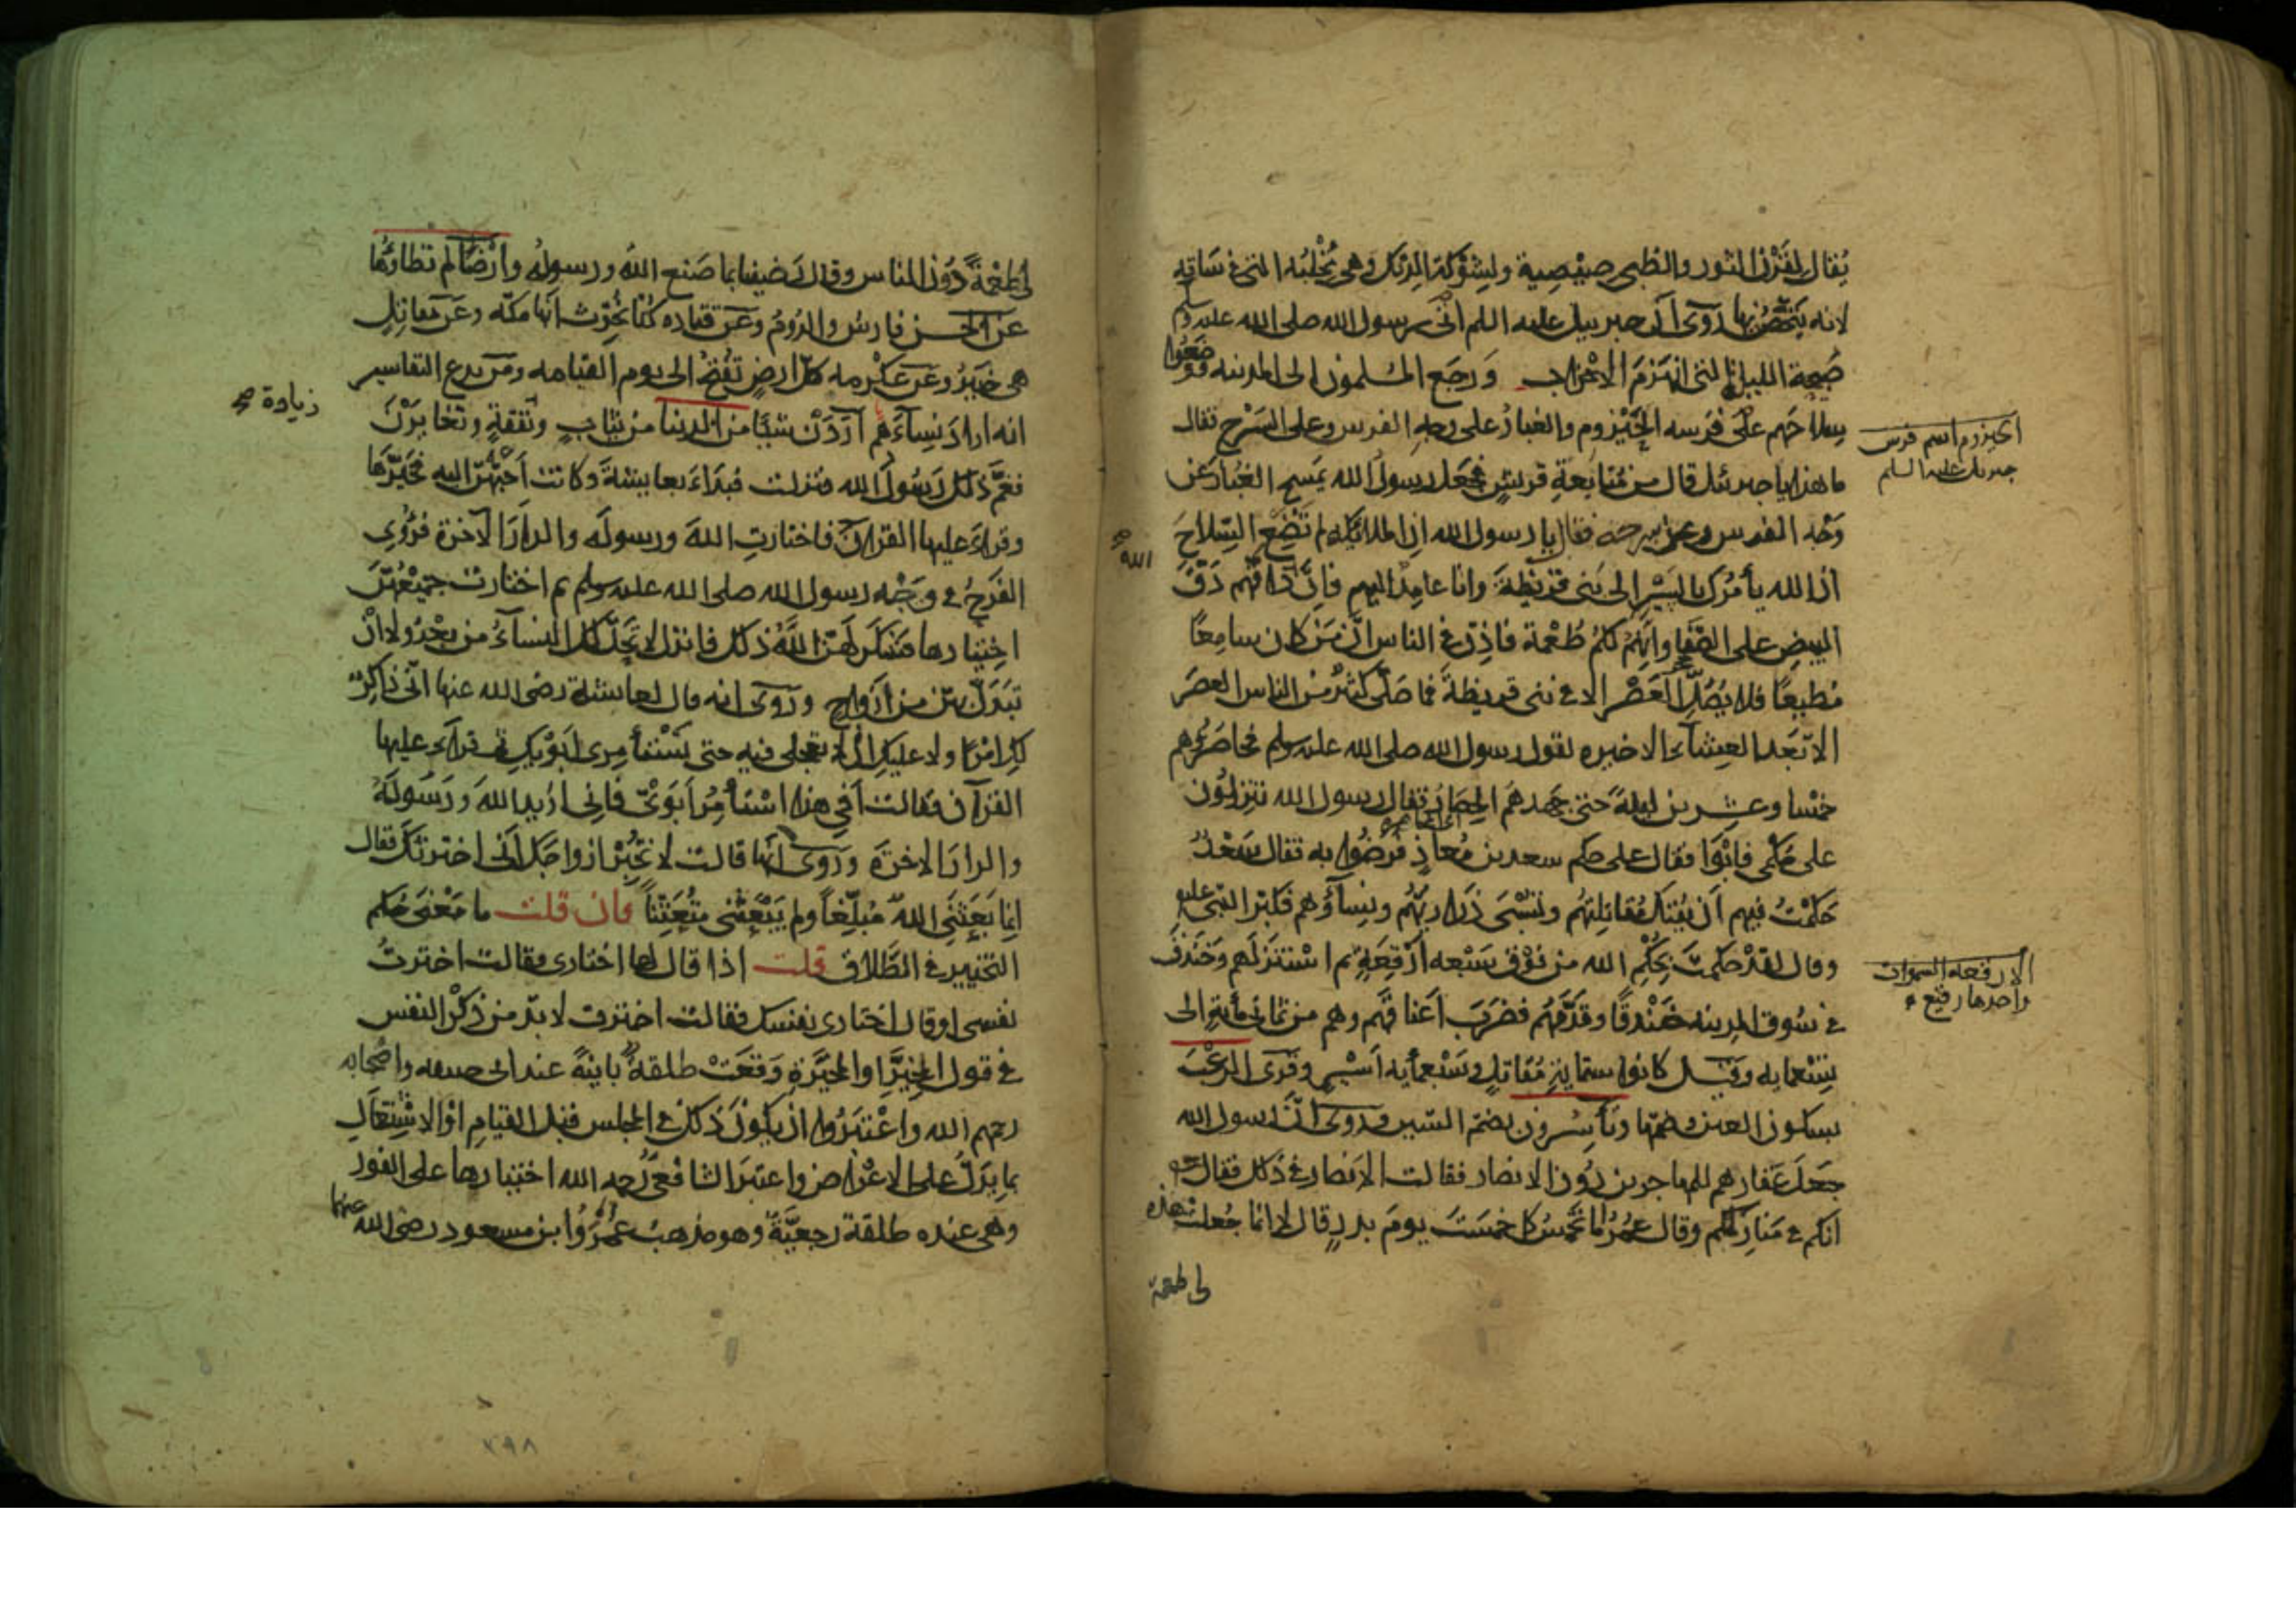 يُقال لقَرْن الثور والظبي صيْصِية ولِشَوْكة الديك وهي مِخْلبُه التي في ساقه
لانه يتحصّن بها رُوىَ أن جبرييل عليه السلم اتى رسول الله صلى الله عليه وسلم
صَبيحة الليلة التي انهزمَ الاحزاب ورجع المسلمون الى المدينه ووضعُوا
سلاحَهم على فرَسه الحَيْزوم والغبارُ على وجه الفرس وعلى السَرْج فقال
ما هذا يا جبرئيل قال من مُتابعةِ قريشٍ فجعَل رسول الله يَمسح الغُبارَ عن
وَجْه الفرس وعن سرجه فقال يا رسول الله ان الملائكه لم تَضَعِ السِّلاحَ
ان الله يأمُرك بالسَيْر الى بَنى قريظةَ وانا عامدٌ اليهم فان الله داقّهم دَقّ
البيضِ على الصَّفا وانهم لكُم طُعْمة فاذِّن في الناس انّ مَن كان سامِعًا
مُطيعًا فلا يُصَلِّ العَصْر الا في بنى قريظةَ فما صَلّى كثيرٌ من الناس العصرَ
الا بَعْد العِشاء الاخيره لقول رسول الله صلى الله عليه وسلم فحاصَرَهم
خمسا وعشرين ليلةً حتى جهدهم الحِصَارُ فقال رسول الله تنزلُون
على حُكمى فابَوْا فقال على حكم سعد بن مُعاذٍ فرَضُوا به فقال سَعْدٌ
حَكَمْتُ فيهم أن يُقتَل مُقاتِلتهُم وتُسْبَى ذراريّهُم ونِساؤُهم فكبّر النّبى عليه
وقال لقدْ حكمتَ بحُكْمِ الله من فوْق سَبْعه أَرْقِعَةٍ ثم اسْتنزلهم وخَندقَ
في سُوق المدينه خَنْدقًا وقدَّمهُم فضرَبَ أعناقَهم وهم من ثمانمأيةٍ الى
تِسْعمايه وقيل كانوا ستمايةِ مُقاتلٍ وسَبْعمايه أسْيرٍ وقُرِىَ الرعْبَ
بسكون العين وضمّها وتأسُرون بضم السّين ورُوىَ انّ رسول الله
جعَلَ عَقارهم للمهاجرين دُون الانصار فقالت الانصار في ذلك فقال
انكم في مَنازِلكم وقال عمرُ أما تُخمِّسُ كما خمَّسْتَ يومَ بدرٍ قال لا انما جُعلتْ هذه
لى طعمة
الحيزوم اسم فرس
جبريل عليه السلم
الله صح
الارقعه السموات
واحدها رقيع
لى طُعْمةً دُونَ الناس وقال رَضينا بما صَنع الله ورسوله وأرْضًا لم تطأوُها
عن الحسن فارسُ والرُومُ وعن قتاده كُنّا نُحدَّث انها مكّه وعن مقاتل
هى خيْبرُ وعن عكْرمه كلّ ارضٍ تُفتَحُ الى يوم القيامه ومن بدع التفاسير
انه ارادَ نِساءَهم أرَدْنَ شيًا من الدنيا من ثيابٍ ونَفَقةٍ وتغايَرْنَ
فغَمَّ ذلك رَسُولَ الله فنزلت فبَدأ بعايشةَ وكانت أحَبّهُنّ اليه فخَيَّرَها
وقرأ عليها القرآن فاختارتِ اللهَ ورسوله والدارَ الآخرة فرُؤى
الفَرَحُ في وَجْه رسول الله صلى الله عليه وسلم ثم اختارت جميعُهُنّ
اختيارها فشكَر لهُنّ اللهُ ذلك فانزل لا تَحلّ لك النساءُ من بعْدُ ولا انْ
تَبَدّل بهن من أزواجٍ ورُوى انه قال لعايشة رضى الله عنها انّى ذاكرٌ
لكِ امْرًا ولا عليكِ ان لا تَعجلى فيه حتى تَسْتَأمِرى أبَوَيْكِ ثم قرأ عليها
القرآن فقالت أفى هذا استأمِرُ أبَوَىّ فانى اُريد اللهَ ورَسُولَه
والدارَ الاخرَةَ ورُوىَ انّها قالت لا تخْبِرْ ازواجَك أنّى اخترتكَ فقال
انما بَعَثَنِى اللهُ مُبلِّغاً ولم يَبْعَثْنى متُعَنِّتاً فان قلت ما مَعْنى حُكم
التخيير في الطَّلاق قلت اذا قال لها اختارى فقالت اخترتُ
نفسى او قال اختارى نفسَك فقالت اخترت لا بدّ من ذكْر النفس
في قول المخيِّرِ او المخيَّرةِ وَقَعَتْ طلقةٌ باينةٌ عند ابى حنيفه واصْحابه
رحمهم الله واعْتَبَرُوا ان يكُونَ ذلكَ في المجلس قبْل القيامِ اوْ الاشْتِغالِ
بما يَدُلُّ على الاعْراض واعتبَرَ الشافعىّ رحمه الله اختيارها على الفور
وهى عنده طلقة رجعيَّةٌ وهو مذهبُ عُمَرَ وابن مسعود رضى الله عنهما
زيادة صح
٢٩٨